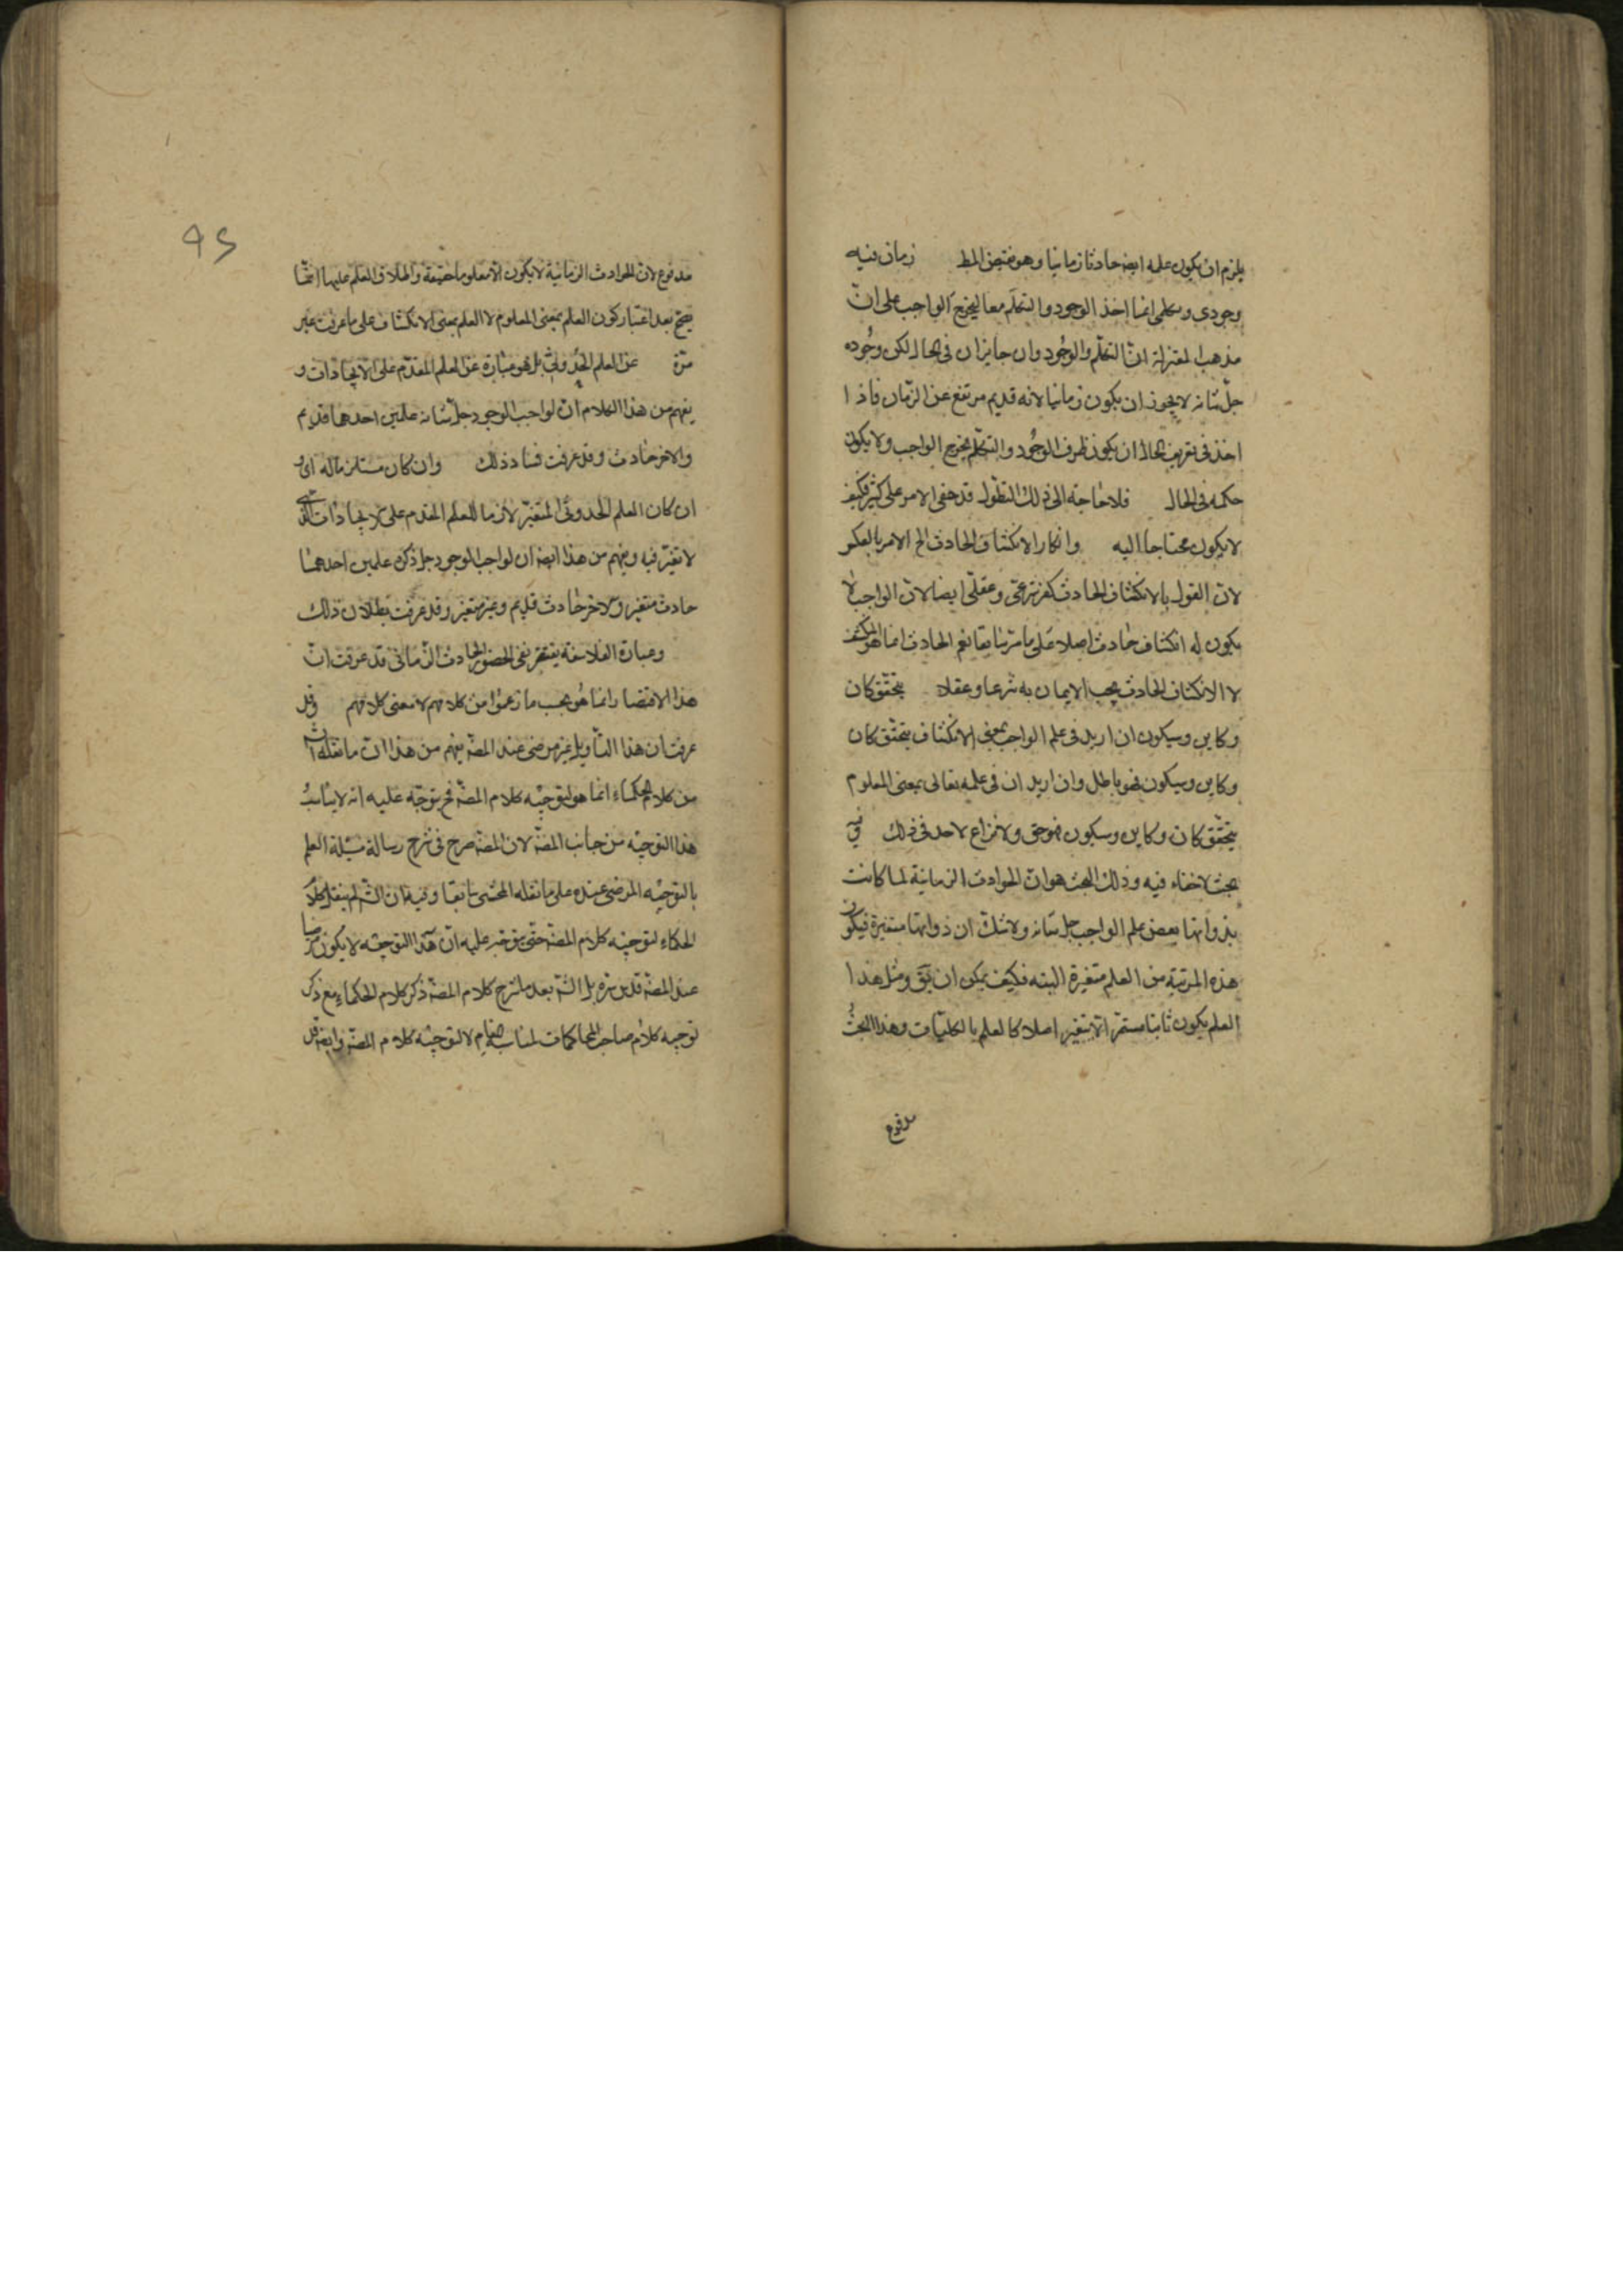 يلزم ان يكون علمه ايضه حادثا زمانيا وهو نقيض المط زمان فيه
وجودى وتكلمى انما اخذ الوجود والتكلم معا ليخرج الواجب على ان
مذهب المعتزلة ان التكلم والوجود وان جايزان فى الحال لكن وجوده
جل شانه لا يجوز ان يكون زمانيا لانه قديم مرتفع عن الزمان فاذا
اخذ فى تعريف الحال ان يكون ظرف الوجود والتكلم يخرج الواجب ولا يكون
حكمه فى الحال فلا حاجة الى ذلك التطول قد خفى الامر على كثير فكيف
لا يكون محتاجا اليه وانكار الانكشاف الحادث الخ الامر بالعكس
لان القول بالانكشاف الحادث كفر شرعى وعقلى ايضا لان الواجب لا
يكون له انكشاف حادث اصلا على ما مر سابقا نعم الحادث انما هو المنكشف
لا الانكشاف الحادث يجب الايمان به شرعا وعقلا يتحقق كان
وكاين وسيكون ان اريد فى علم الواجب بمعنى الانكشاف يتحقق كان
وكاين وسيكون فهو باطل وان اريد ان فى علمه تعالى بمعنى المعلوم
يتحقق كان وكاين وسيكون فهو حق ولا نزاع لاحد فى ذلك وفيه
بحث لا خفاء فيه وذلك البحث هو ان الحوادث الزمانية لما كانت
بذواتها بعض علم الواجب جل شانه ولا شك ان ذواتها متغيرة فيكون
هذه المرتبة من العلم متغيرة البته فكيف يمكن ان يق ومثل هذا
العلم يكون ثابتا مستمرا لا يتغير اصلا كالعلم بالكليات وهذا البحث
مدفوع
٩٤
مدفوع لان الحوادث الزمانية لا يكون الا معلوما حقيقة واطلاق العلم عليها انما
يصح بعد اعتبار كون العلم بمعنى المعلوم لا العلم بمعنى الانكشاف على ما عرفت غير
مرة عن العلم الحدوثى بل هو عبارة عن العلم المقدم على الايجادات و
يفهم من هذا الكلام ان لواجب الوجود جل شانه علمين احدهما قديم
والاخر حادث وقد عرفت فساد ذلك وان كان مستلزما له اى و
ان كان العلم الحدوثى المتغير لازما للعلم المقدم على الايجادات الذى
لا تغير فيه ويفهم من هذا ايضه ان لواجب الوجود جل ذكره علمين احدهما
حادث متغير والاخر حادث قديم وغير متغير وقد عرفت بطلان ذلك
وعبارة الفلاسفة يقتصر بنفى الحضور الحادث الزمانى قد عرفت ان
هذا الاقتصار انما هو بحسب ما زعموا من كلامهم لا معنى كلامهم وقد
عرفت ان هذا التأويل غير مرضى عند المصه يفهم من هذا ان ما نقله الش
من كلام الحكماء انما هو لتوجيه كلام المصه فح يتوجه عليه انه لا يناسب
هذا التوجيه من جانب المصه لان المصه صرح فى شرح رسالة مسئلة العلم
بالتوجيه المرضى عنده على ما نقله المحشى سابقا وفيه ان الش لم ينقل كلام
الحكماء لتوجيه كلام المصه حتى يتوجه عليه ان هذا التوجيه لا يكون مرضيا
عند المصه قدس سره بل الش بعد ما شرح كلام المصه ذكر كلام الحكماء مع ذكر
توجيه كلام صاحب المحاكمات لمناسبة المقام لا لتوجيه كلام المصه وايضه قد